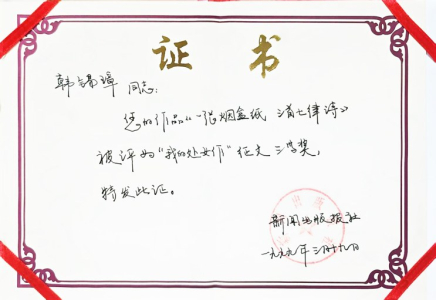 证书
韩锡璋 同志:
您的作品《一张烟盒纸 三首七律诗》
被评为“我的处女作”征文三等奖,
特发此证。
新闻出版报社
一九九九年三月十九日